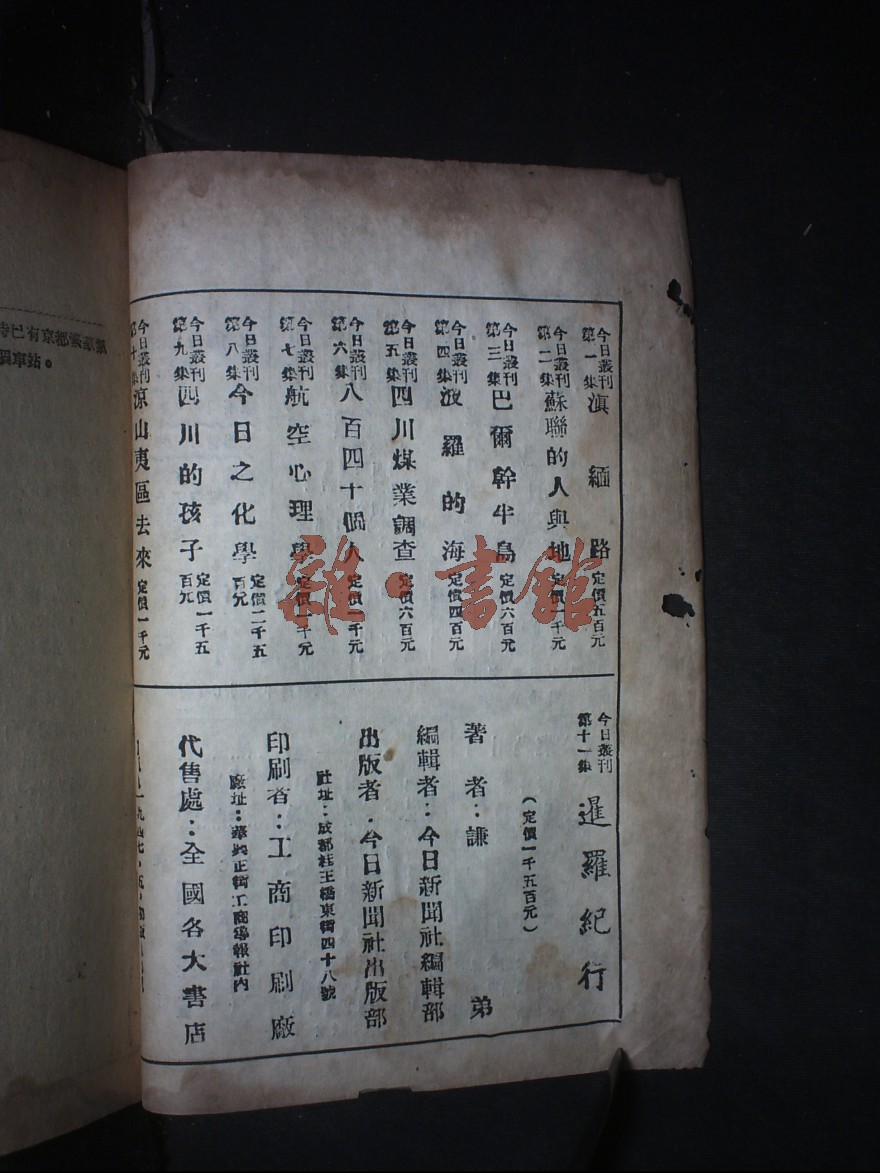 今日叢刊第一集 滇緬路 定價五百元
今日叢刊第二集 蘇聯的人與地 定價一千元
今日叢刊第三集 巴爾幹半島 定價六百元
今日叢刊第四集 波羅的海 定價四百元
今日叢刊第五集 四川煤業調查 定價六百元
今日叢刊第六集 八百四十個人 定價一千元
今日叢刊第七集 航空心理學 定價一千元
今日叢刊第八集 今日之化學 定價二千五百元
今日叢刊第九集 四川的孩子 定價一千五百元
今日叢刊第十集 涼山夷區去來 定價一千元
今日叢刊第十一集 暹羅紀行
(定價一千五百元)
著者:謙弟
編輯者:今日新聞社編輯部
出版者:今日新聞社出版部
社址:成都桂王橋東街四十八號
印刷者:工商印刷廠
廠址:華興正街工商導報社內
代售處:全國各大書店
時已有京都
車站。
雜·書館